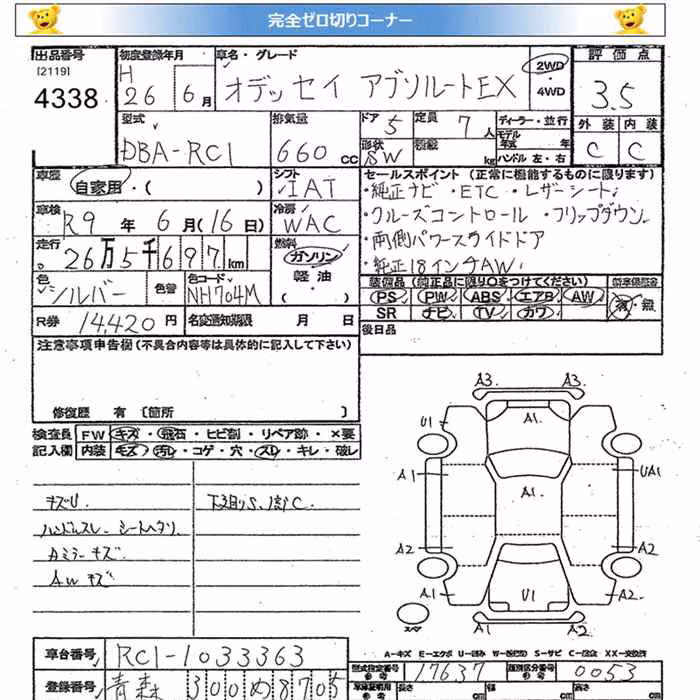 完全ゼロ切りコーナー
出品番号 初度登録年月 車名・グレード 評価点
[2119]
4338
H 26 6月 オデッセイ アブソルートEX 2WD・4WD 3.5
型式 排気量 ドア 定員 ディーラー・並行 外装 内装
DBA-RC1 660cc 5 7人 モデル年式 年 C C
形状 SW 積載 kg ハンドル 左・右
車歴 自家用・( ) シフト IAT セールスポイント (正常に機能するものに限ります)
・純正ナビ ・ETC ・レザーシート
車検 R9年 6月(16日) 冷房 WAC ・クルーズコントロール ・フリップダウン
走行 26万5千697km 燃料 ガソリン 軽油 ( ) ・両側パワースライドドア
・純正18インチAW
色 シルバー 色替 色コード NH704M 装備品(純正品に限り○をつけてください)
PS PW ABS エアB AW 有・無
SR ナビ TV カワ
R券 14,420円 名変通知期限 月 日 後日品
注意事項申告欄(不具合内容等は具体的に記入して下さい)
修復歴 有 [箇所 ]
検査員 FW キズ・飛石・ヒビ割・リペア跡・×要
記入欄 内装 キズ・汚レ・コゲ・穴・スレ・キレ・破レ
キズU. 下廻りS、腐C.
ハンドルスレ シートヘタリ
Aミラーキズ
AWキズ
A3. A3.
U1 A1.
A1 A1. UA1
A2 A2
A1 U1 A2
A2
スペア
A-キズ E-エクボ U-凹み W-補修跡 S-サビ C-腐食 XX-交換済
車台番号 RC1-1033363 型式指定番号 17637 類別区分番号 0053
登録番号 青森 300め8705 長さ cm 幅 cm 高さ cm